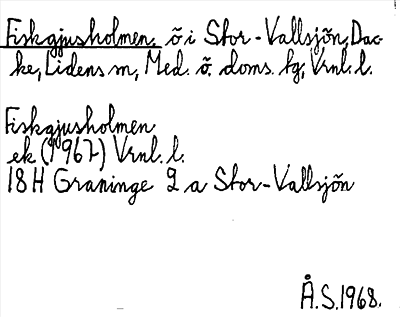 Fiskgjusholmen, ö i Stor-Vallsjön, Dac-
ke, Lidens sn, Med. ö. doms. fg, Vrnl. l.
Fiskgjusholmen
ek (1967) Vrnl. l.
18 H Graninge 2 a Stor-Vallsjön
Å.S. 1968.